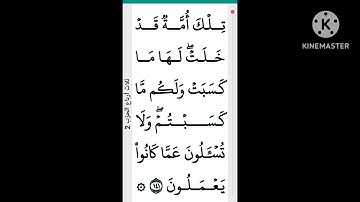 تِلْكَ أُمَّةٌ قَدْ
خَلَتْۖ لَهَا مَا
كَسَبَتْ وَلَكُم مَّا
كَسَبْتُمْۖ وَلَا
تُسْـَٔلُونَ عَمَّا كَانُوا۟
يَعْمَلُونَ ١٤١
ثلاث أرباع الحزب 2
KINEMASTER